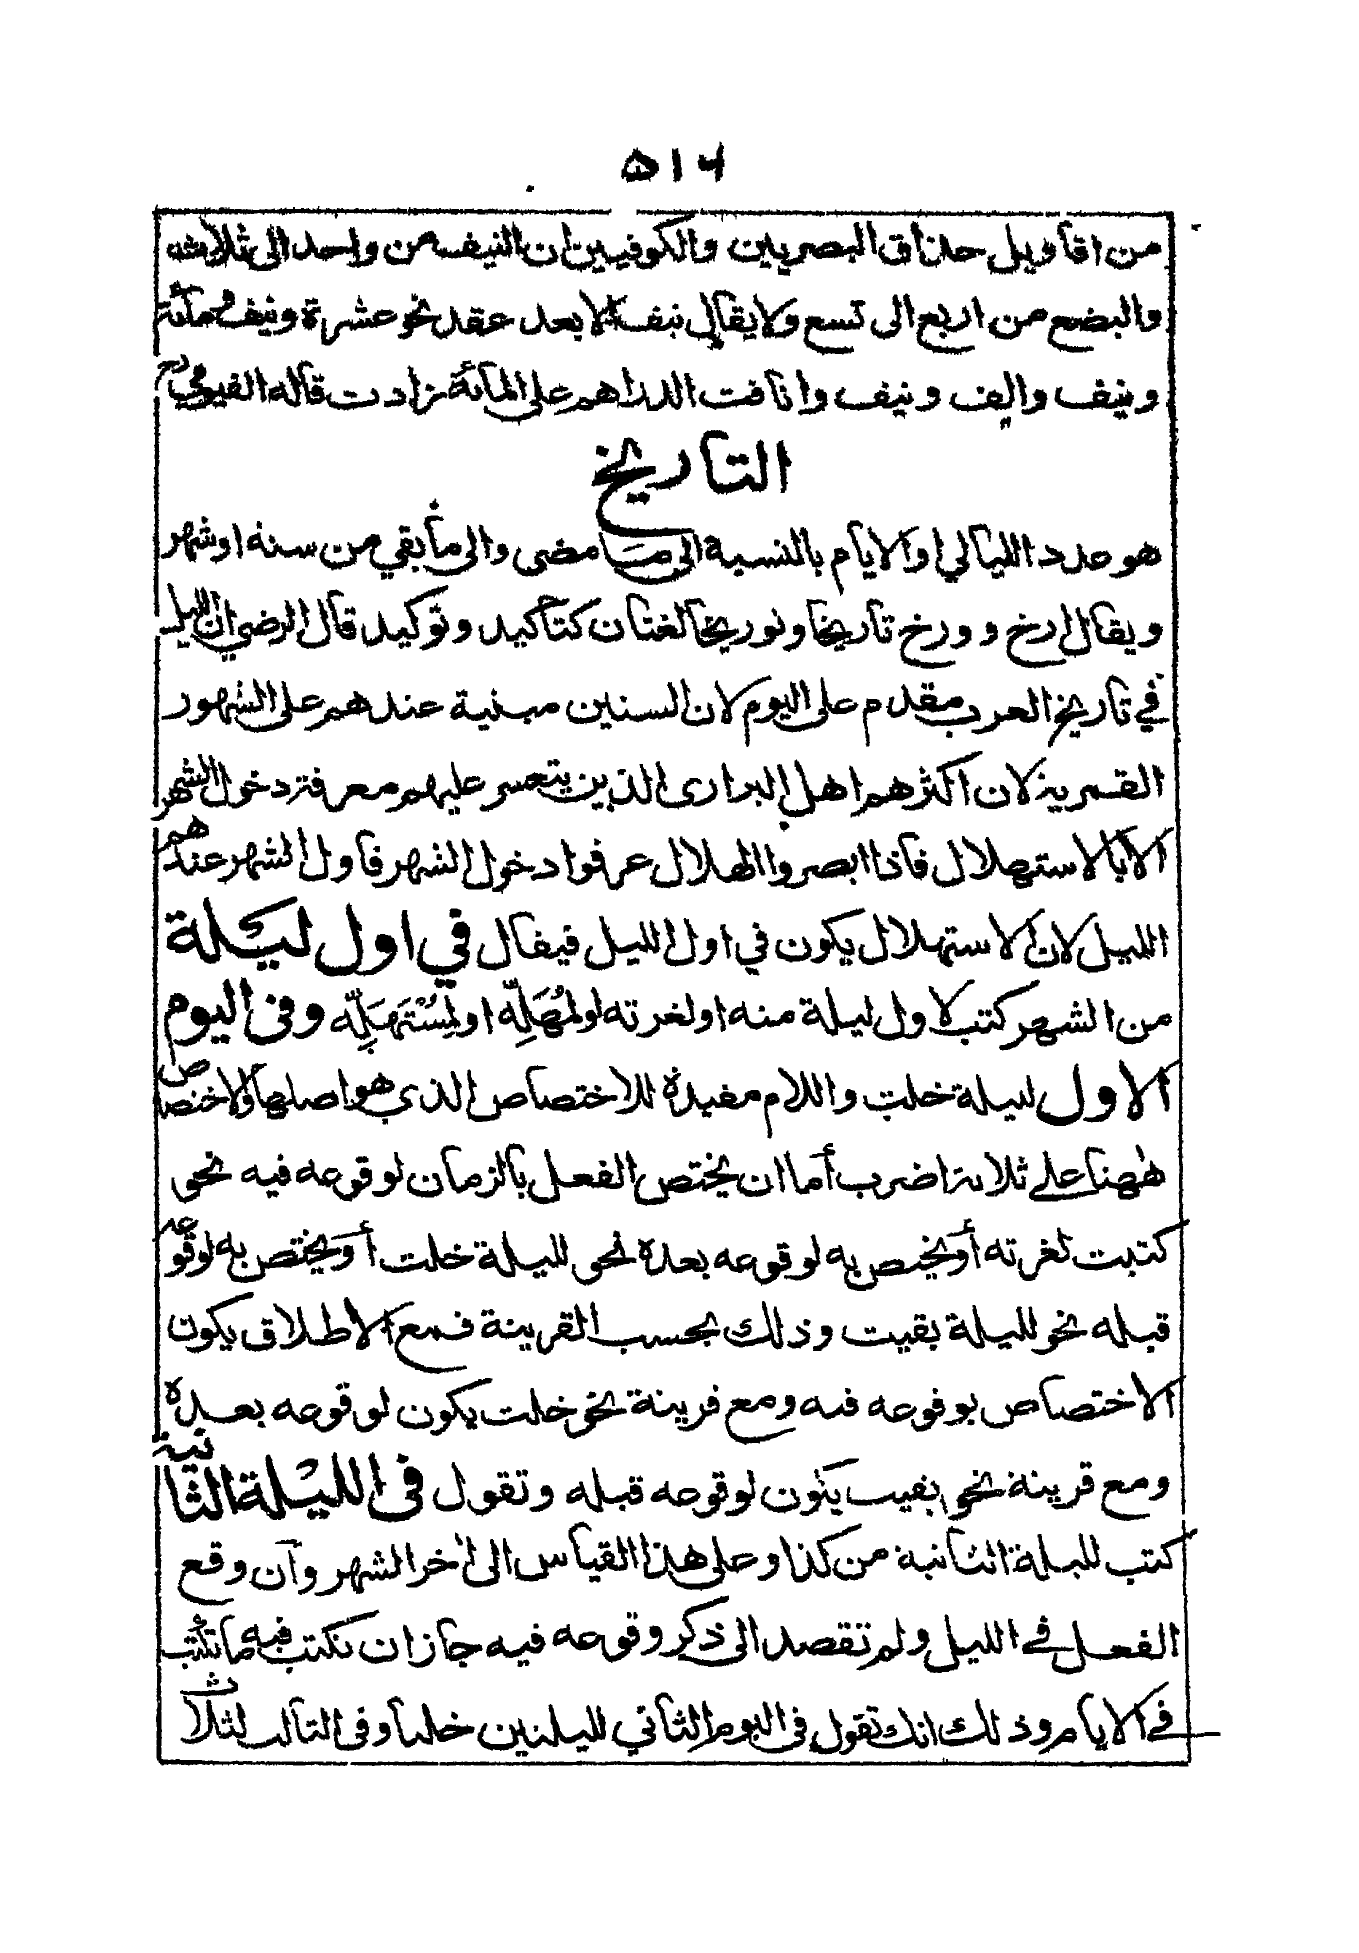 ٥١٦
من اقاويل حذاق البصريين والكوفيين ان النيف من واحد الى ثلاثة
والبضع من اربع الى تسع ولا يقال نيف الا بعد عقد نحو عشرة ونيف ومائة
ونيف والف ونيف وانافت الدراهم على المائة زادت قاله الفيومي رح
التاريخ
هو عدد الليالي او الايام بالنسبة الى ما مضى والى ما بقي من سنه او شهر
ويقال ارخ وورخ تاريخا وتوريخا لغتان كتاكيد وتوكيد قال الرضي ان الليل
في تاريخ العرب مقدم على اليوم لان السنين مبنية عندهم على الشهور
القمرية لان اكثرهم اهل البراري الذين يتعسر عليهم معرفة دخول الشهر
الا بالاستهلال فاذا ابصروا الهلال عرفوا دخول الشهر فاول الشهر عندهم
الليل لان الاستهلال يكون في اول الليل فيقال في اول ليلة
من الشهر كتب لاول ليلة منه او لغرته او لمُهَلِّه او لمُسْتَهَلِّه وفي اليوم
الاول لليلة خلت واللام مفيدة للاختصاص الذي هو اصلها والاختصاص
ههنا على ثلاثة اضرب أما ان يختص الفعل بالزمان لوقوعه فيه نحو
كتبت لغرته أو يختص به لوقوعه بعده نحو لليلة خلت أو يختص به لوقوعه
قبله نحو لليلة بقيت وذلك بحسب القرينة فمع الاطلاق يكون
الاختصاص بوقوعه فيه ومع قرينة نحو خلت يكون لوقوعه بعده
ومع قرينة نحو بقيت يكون لوقوعه قبله وتقول في الليلة الثانية
كتب لليلة الثانية من كذا وعلى هذا القياس الى اخر الشهر وآن وقع
الفعل في الليل ولم تقصد الى ذكر وقوعه فيه جاز ان تكتب فيه ما تكتب
في الايام وذلك انك تقول في اليوم الثاني لليلتين خلتا وفي الثالث لثلاث